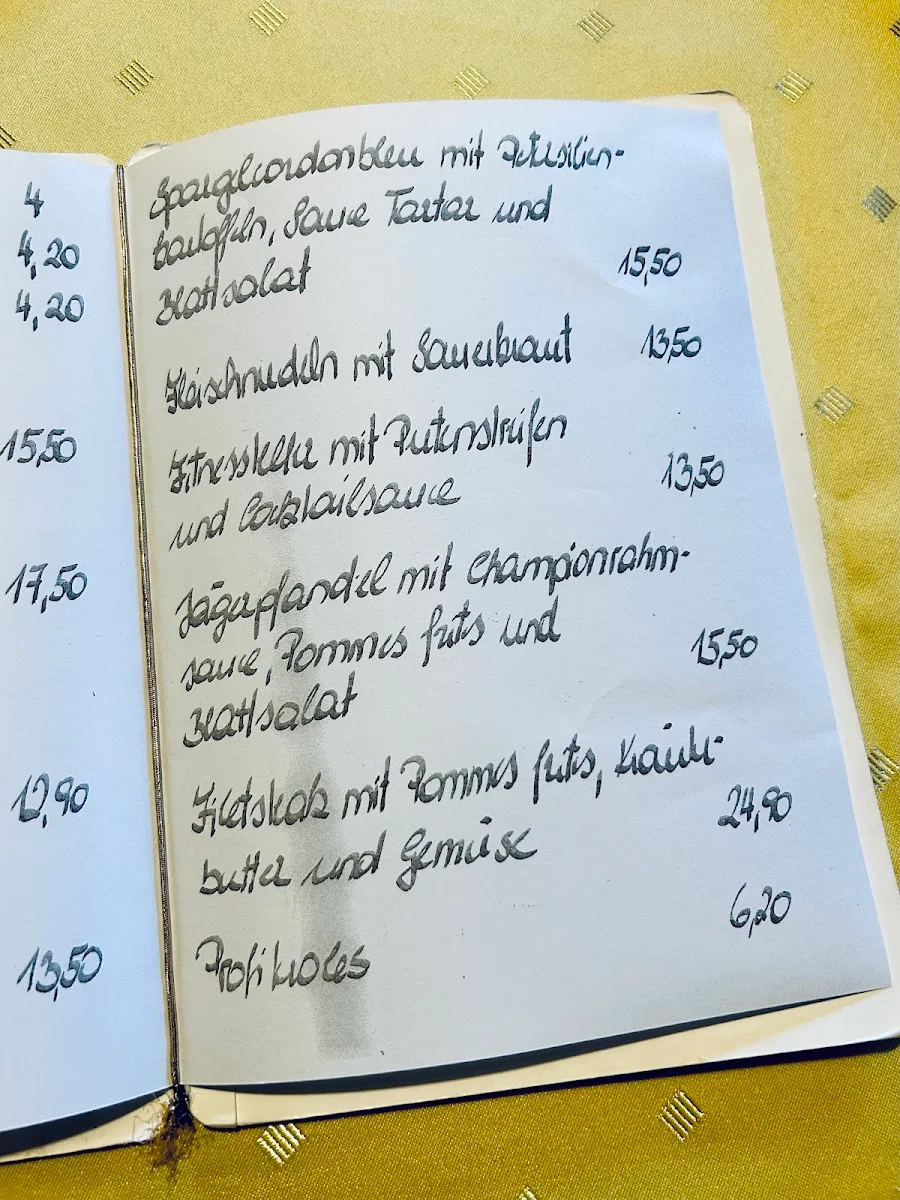 4
4,20
4,20
15,50
17,50
12,90
13,50
Spargelcordonbleu mit Petersilien-
kartoffeln, Sauce Tartar und
Blattsalat 15,50
Fleischnudeln mit Sauerkraut 13,50
Fitnessteller mit Putenstreifen
und Cocktailsauce 13,50
Jägerpfandel mit Championrahm-
sauce, Pommes frits und 15,50
Blattsalat
Filetsteak mit Pommes frits, Kräuter-
butter und Gemüse 24,90
Profiteroles 6,20